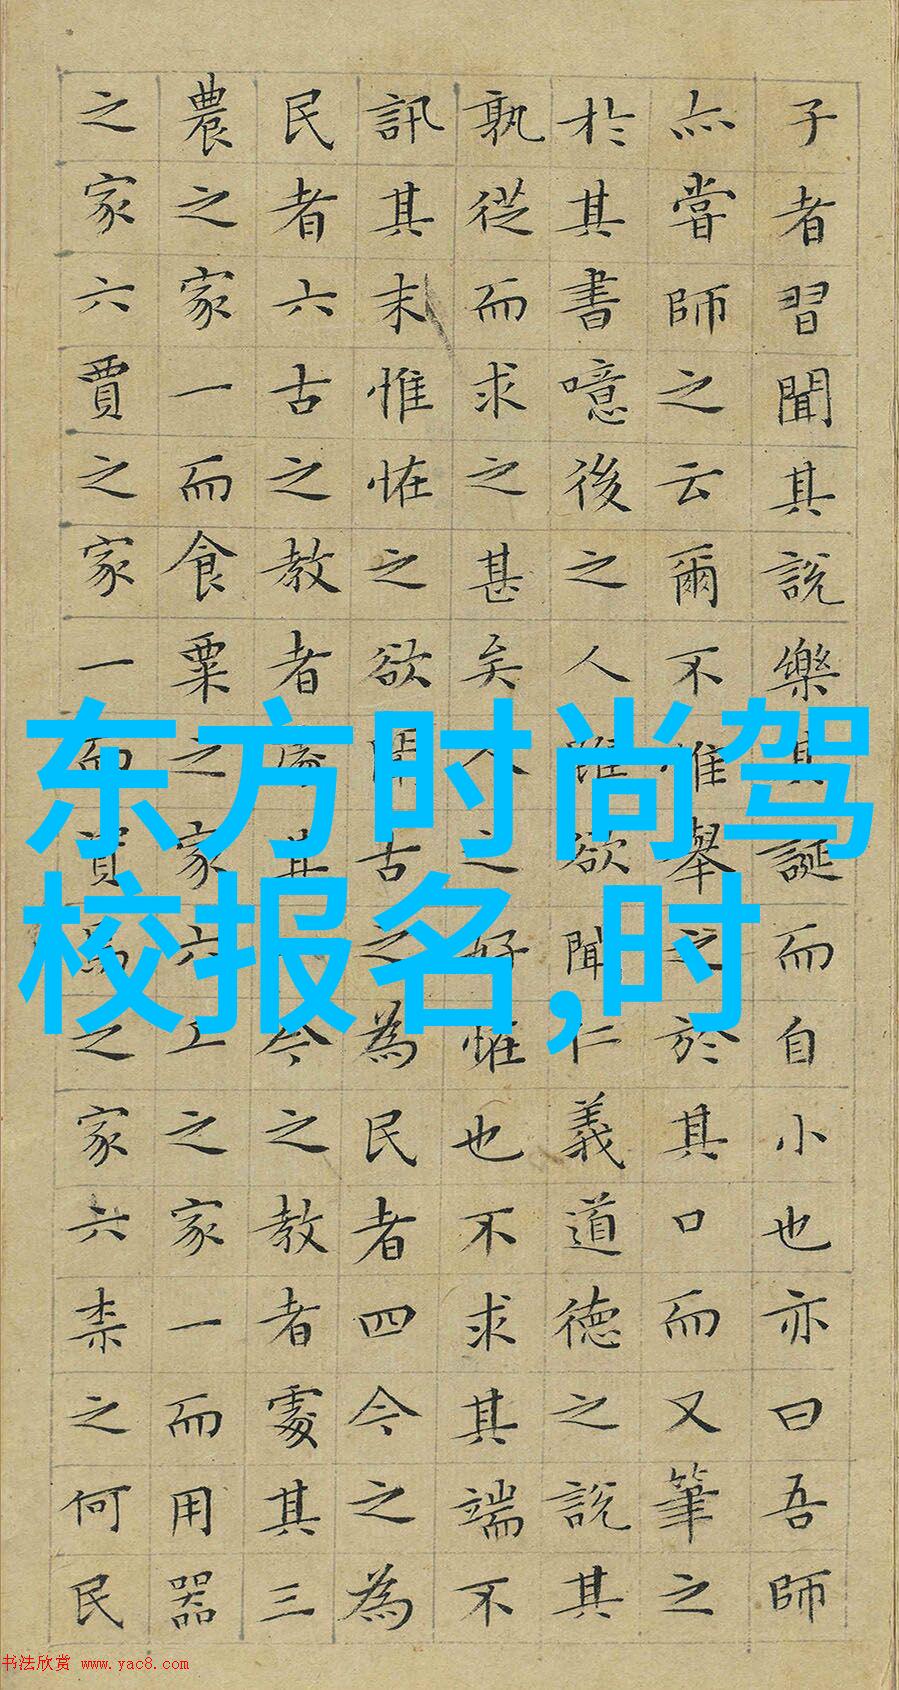 子者習聞其說樂其誕而自小也亦曰吾師
亦嘗師之云爾不惟舉之於其口而又筆之
於其書噫後之人雖欲聞仁義道德之說其
孰從而求之甚矣人之好怪也不求其端不
訊其末惟怪之欲聞古之為民者四今之為
民者六古之教者處其今之教者處其三
農之家一而食粟之家六工之家一而用器
之家六賈之家一而資焉之家六柰之何民
东方时尚驾
校报名,时
书法欣赏 www.yac8.com